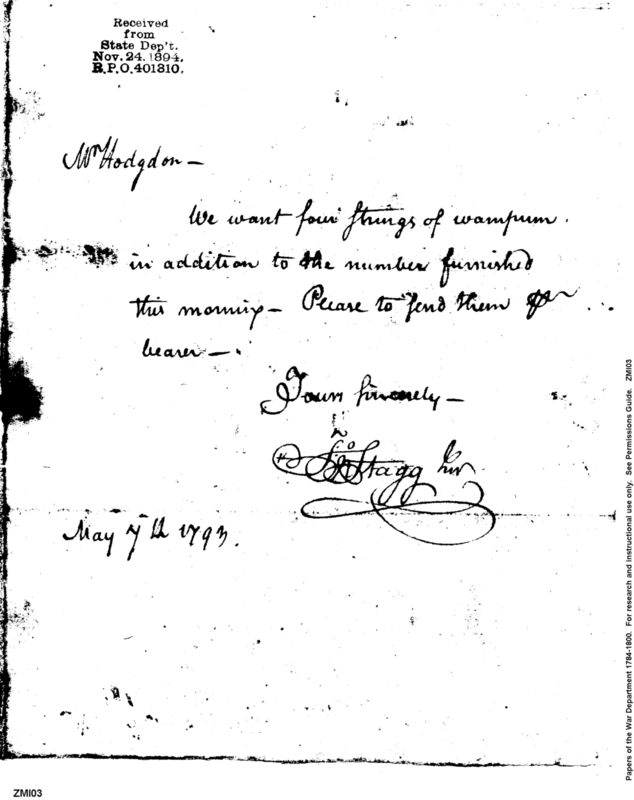 Received
from
State Dep't.
Nov. 24. 1894.
R.P.O. 401310.
Mr Hodgdon —
We want four strings of wampum.
in addition to the number furnished
this morning — Please to send them
bearer —
Yours sincerely —
Jno Stagg Junr
May 7th 1793.
Papers of the War Department 1784-1800. For research and instructional use only. See Permissions Guide. ZMI03
ZMI03